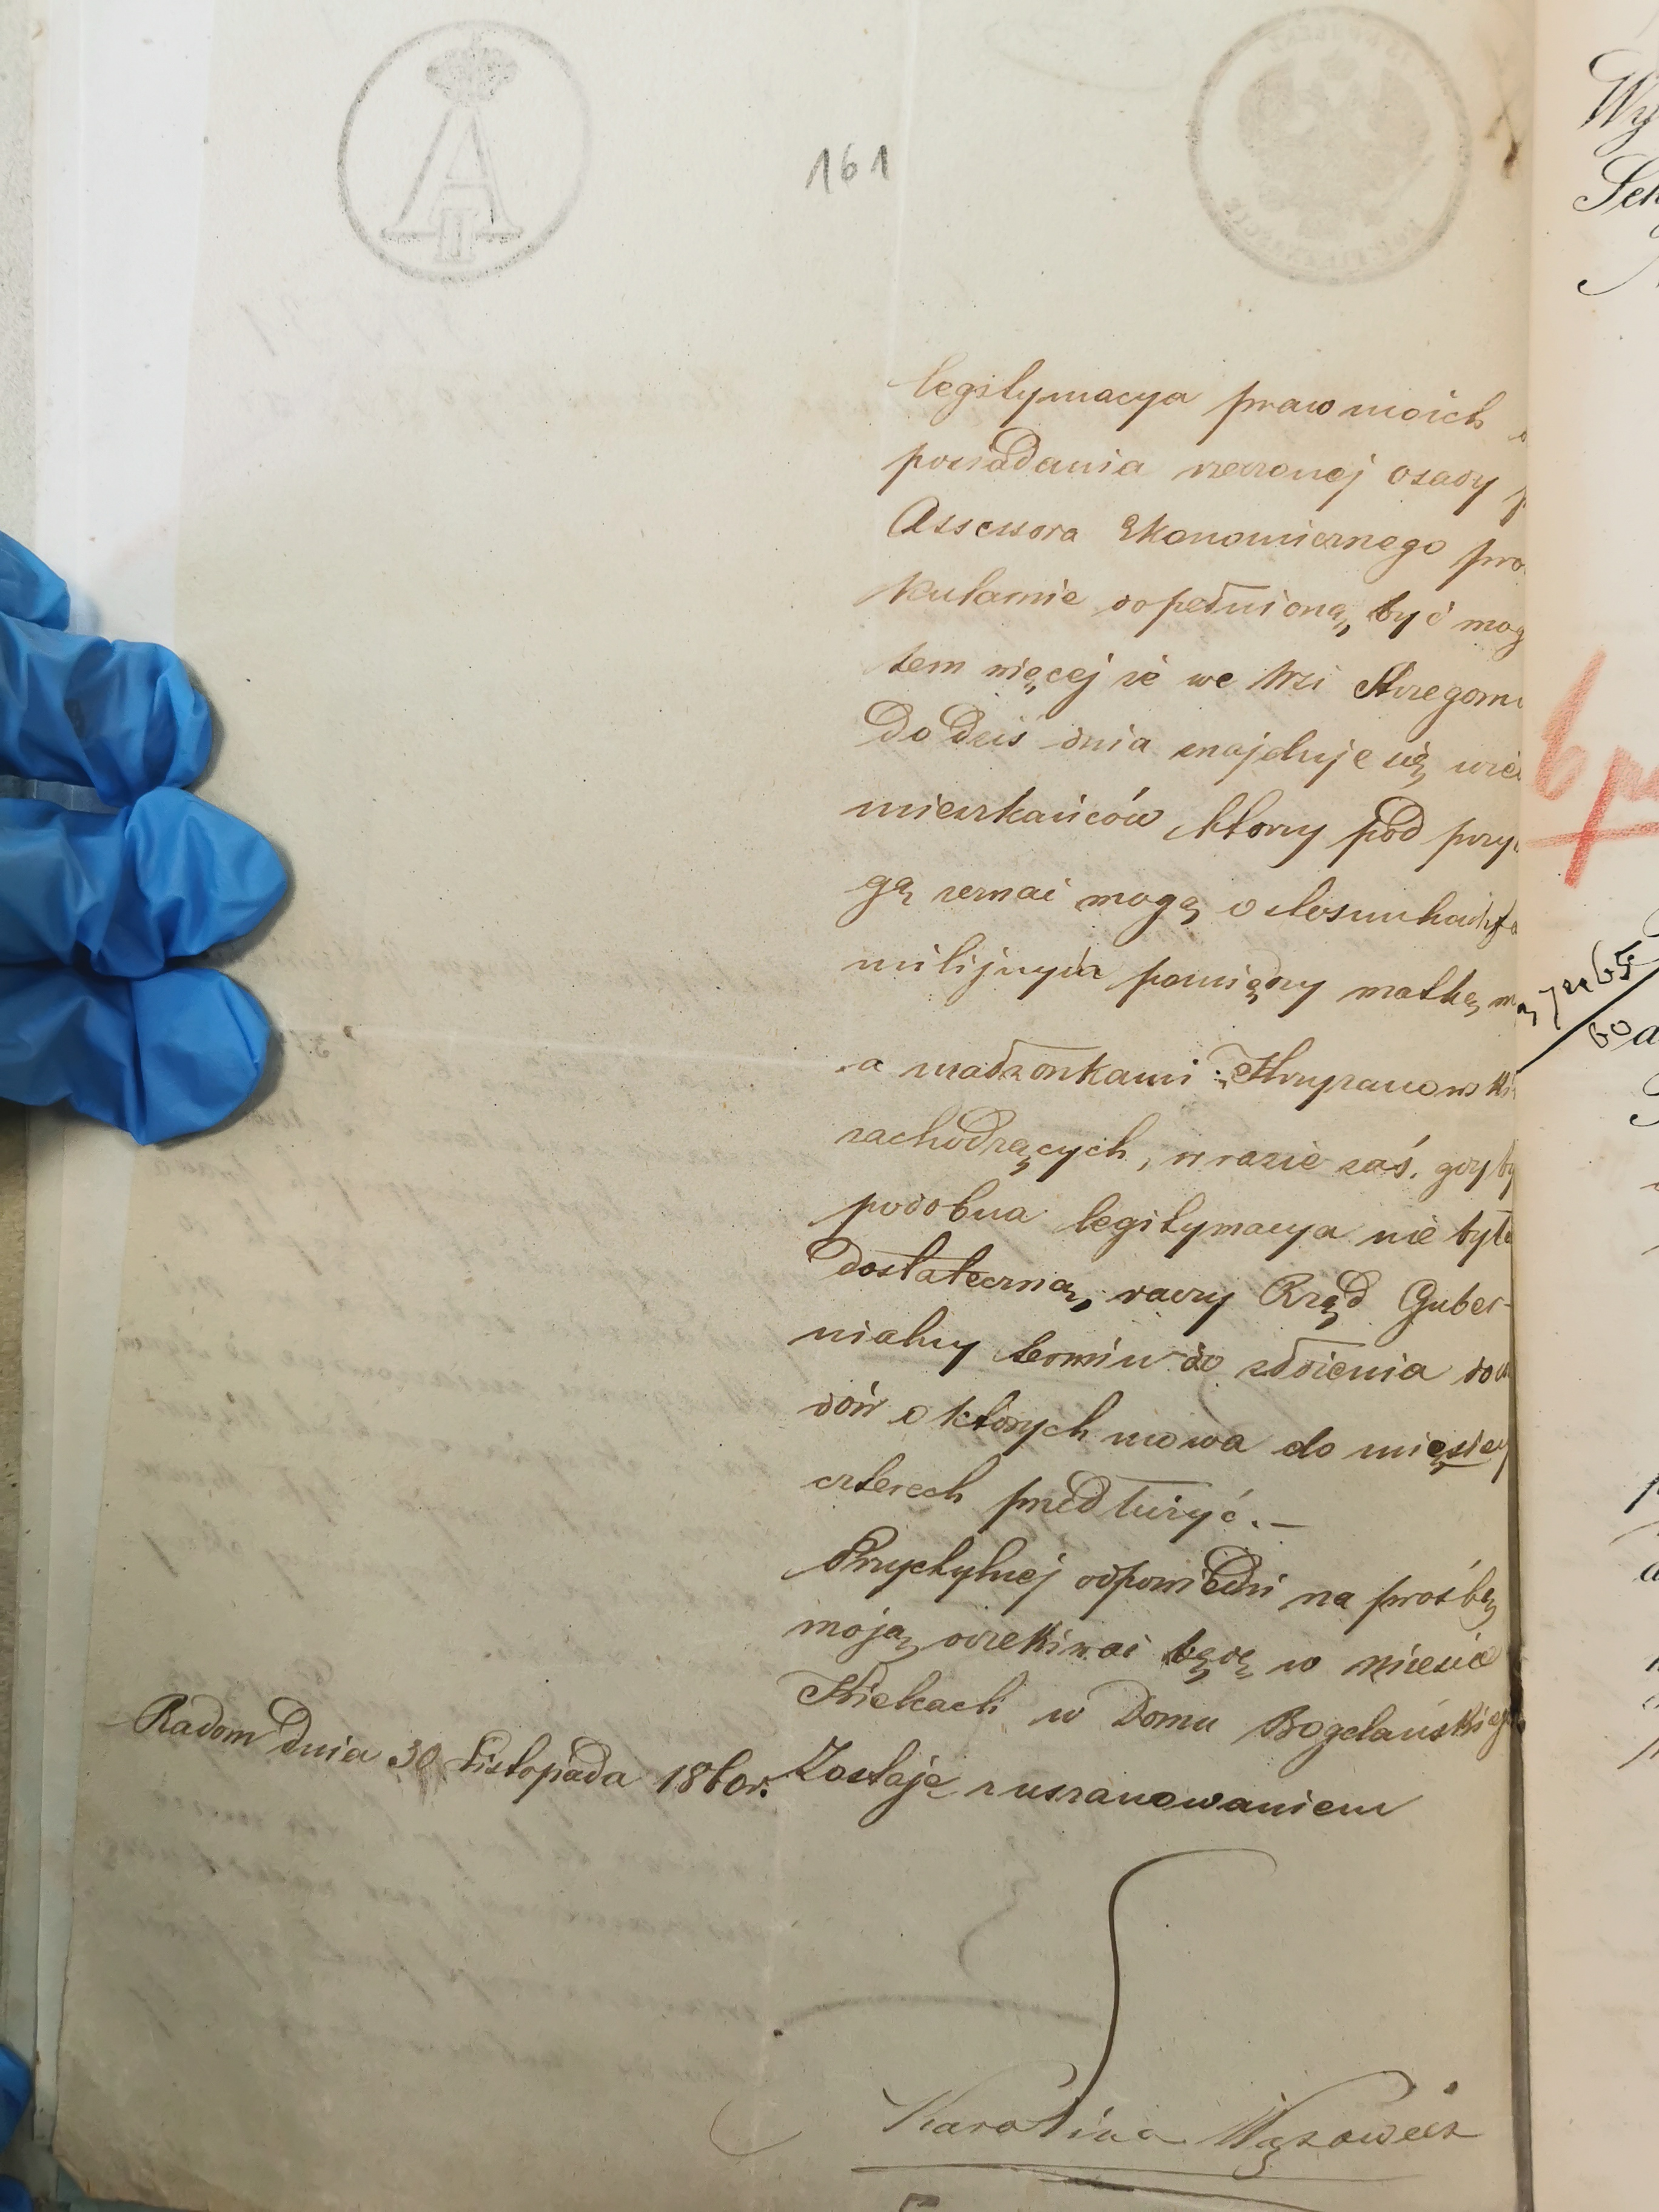 A
II
161
legitymacya praw moich
posiadania rzeczonej osady p
Assessora Ekonomicznego pro-
tkularnie dopełnioną być mog
tem więcej że we Wsi Strzegom
do dziś dnia znajduje się wie
mieszkańców którzy pod przy
gą zeznać mogą o stosunkach fa
milijnych pomiędzy matką m
a małżonkami Skrzypanowski
zachodzących, w razie zaś, gdyby
podobna legitymacya nie była
dostateczną, raczy Rząd Guber-
nialny termin do złożenia dow
dów o których mowa do miesięcy
czterech przedłużyć. —
Przychylnej odpowiedzi na prośbę
moją oczekiwać będę w mieście
Kielcach w Domu Bogdańskiego
Radom dnia 30 Listopada 1860r. Zostaję z uszanowaniem
Karolina Wąsowicz